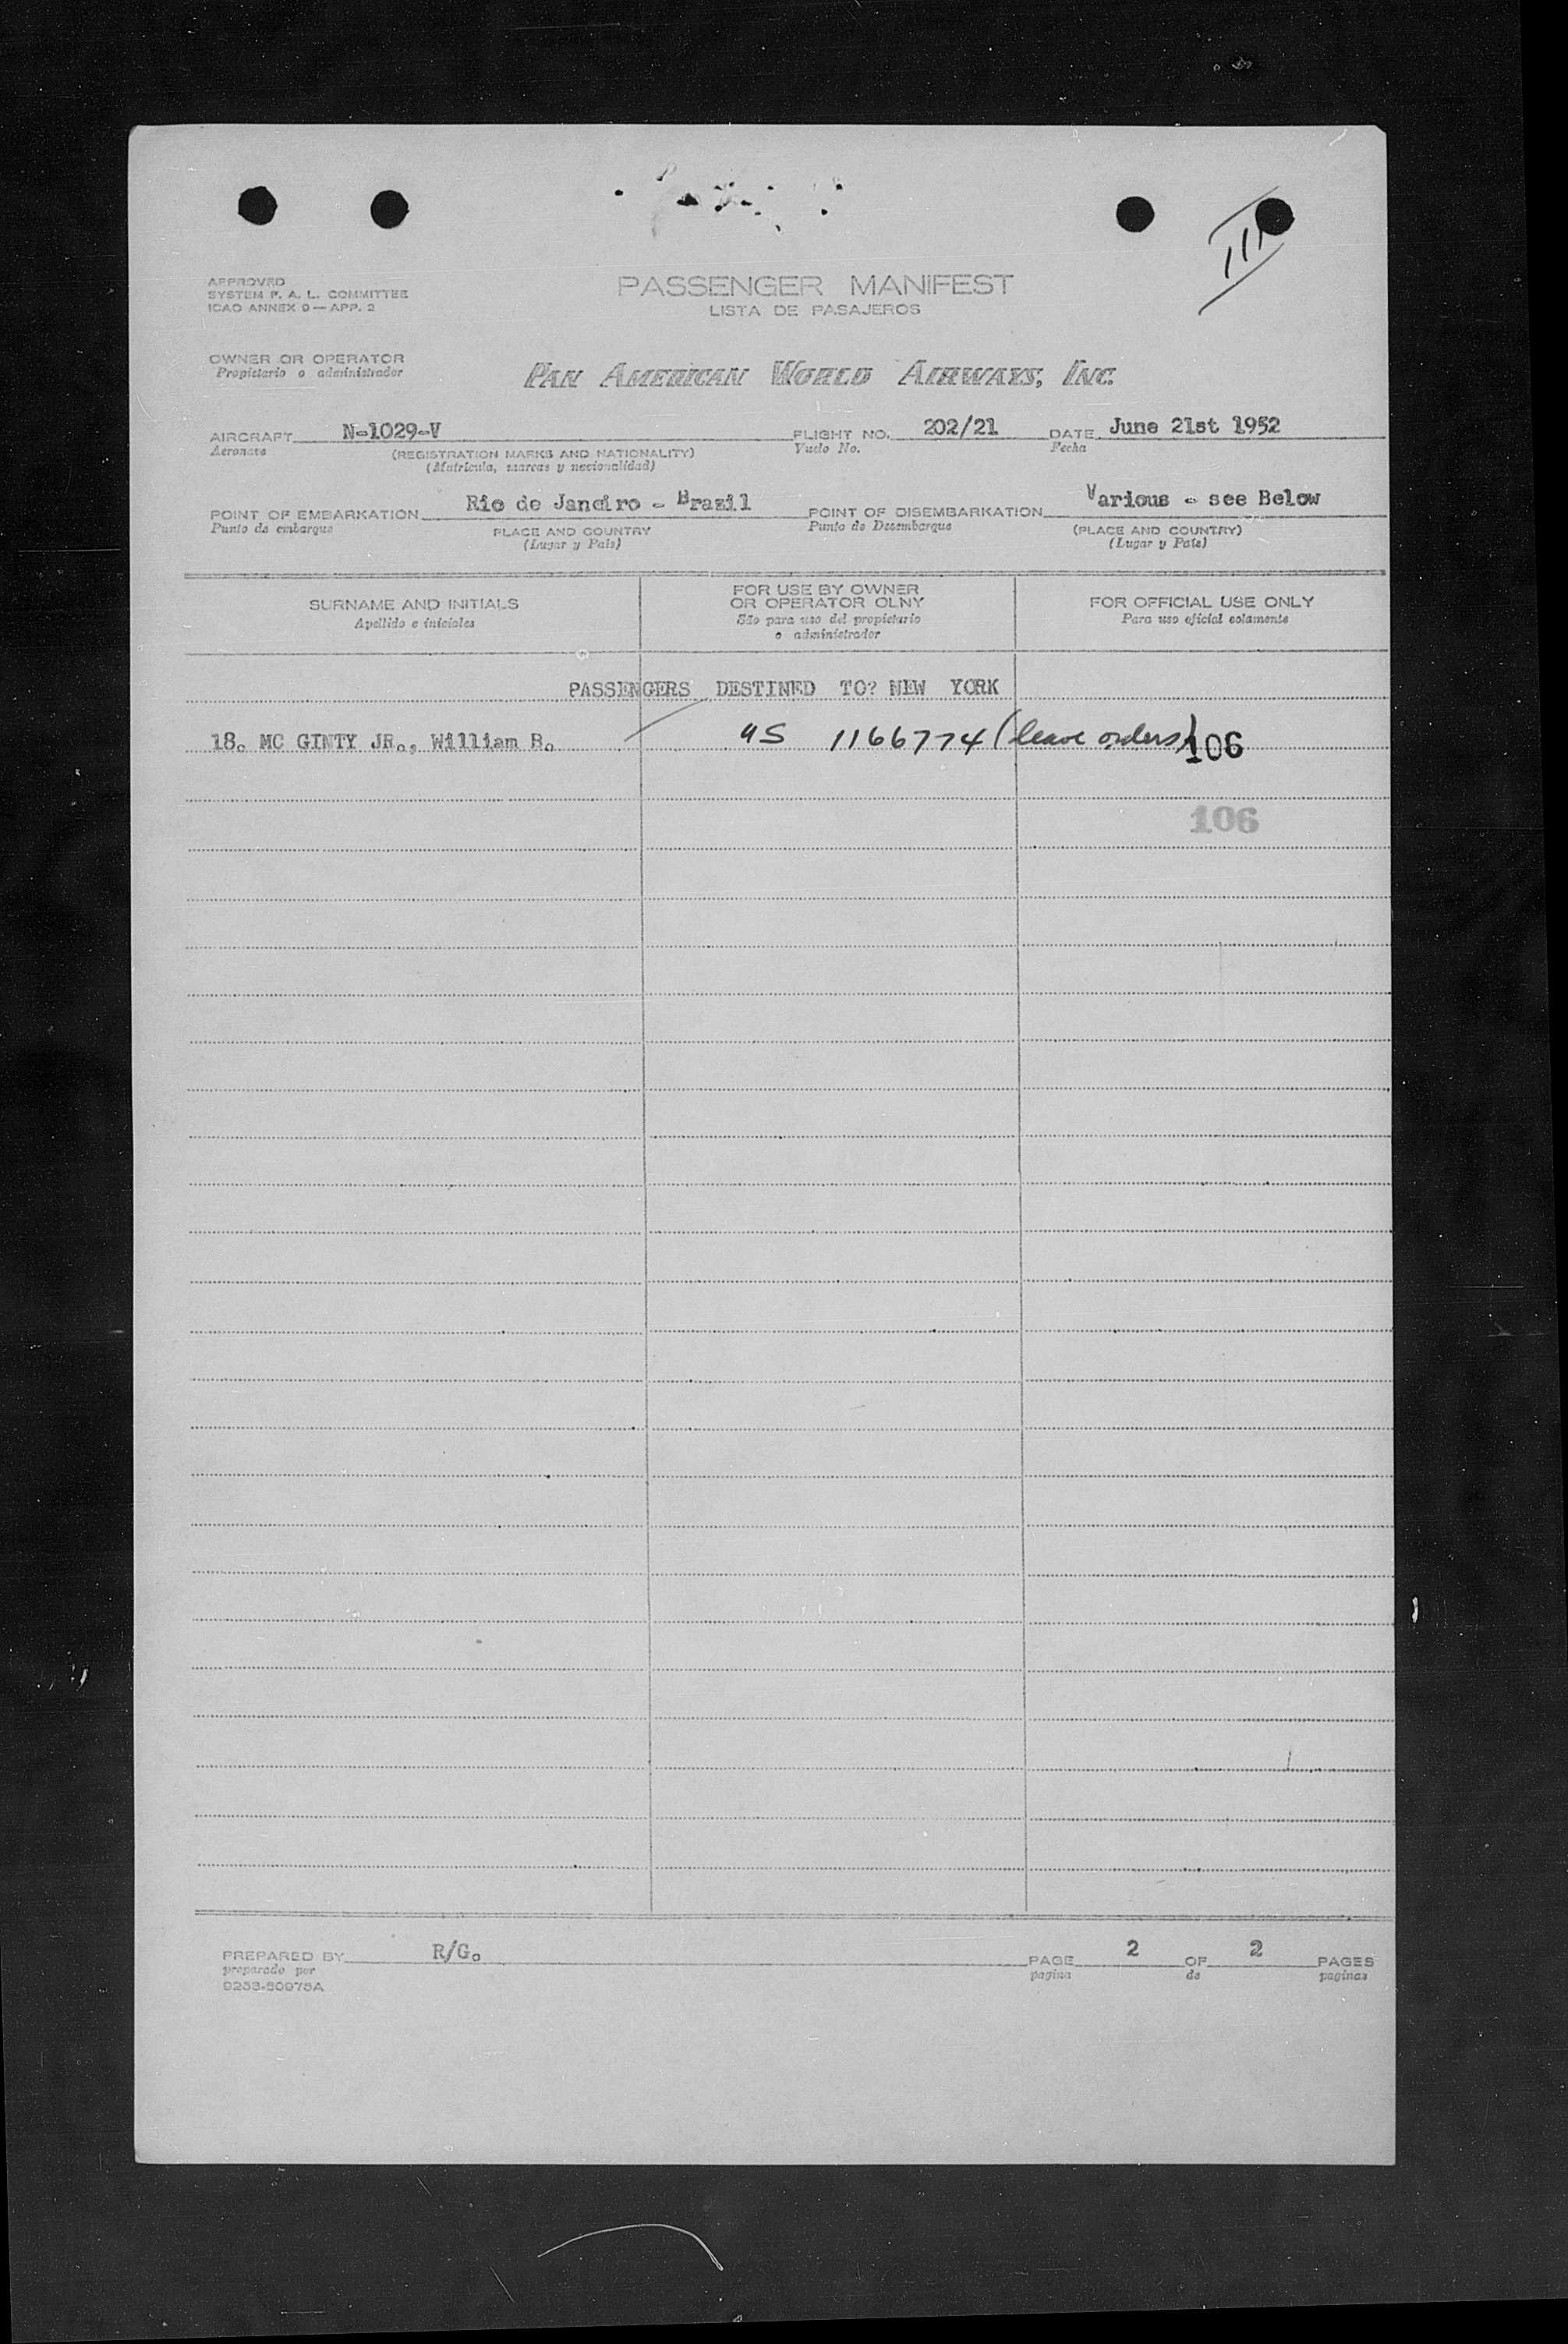 III
APPROVED
SYSTEM F. A. L. COMMITTEE
ICAO ANNEX 9 — APP. 2
PASSENGER MANIFEST
LISTA DE PASAJEROS
OWNER OR OPERATOR
Propietario o administrador
PAN AMERICAN WORLD AIRWAYS, INC.
AIRCRAFT N-1029-V FLIGHT NO. 202/21 DATE June 21st 1952
Aeronave (REGISTRATION MARKS AND NATIONALITY) Vuelo No. Fecha
(Matricula, marcas y nacionalidad)
POINT OF EMBARKATION Rio de Janeiro - Brazil POINT OF DISEMBARKATION Various - see Below
Punto de embarque PLACE AND COUNTRY Punto de Desembarque (PLACE AND COUNTRY)
(Lugar y Pais) (Lugar y Pais)
SURNAME AND INITIALS FOR USE BY OWNER FOR OFFICIAL USE ONLY
Apellido e iniciales OR OPERATOR OLNY Para uso oficial solamente
Sólo para uso del propietario
o administrador
PASSENGERS DESTINED TO? NEW YORK
18. MC GINTY JR., William B. US 1166774 (leave orders) 106
106
PREPARED BY R/G. PAGE 2 OF 2 PAGES
preparado por pagina de paginas
9253-50975A